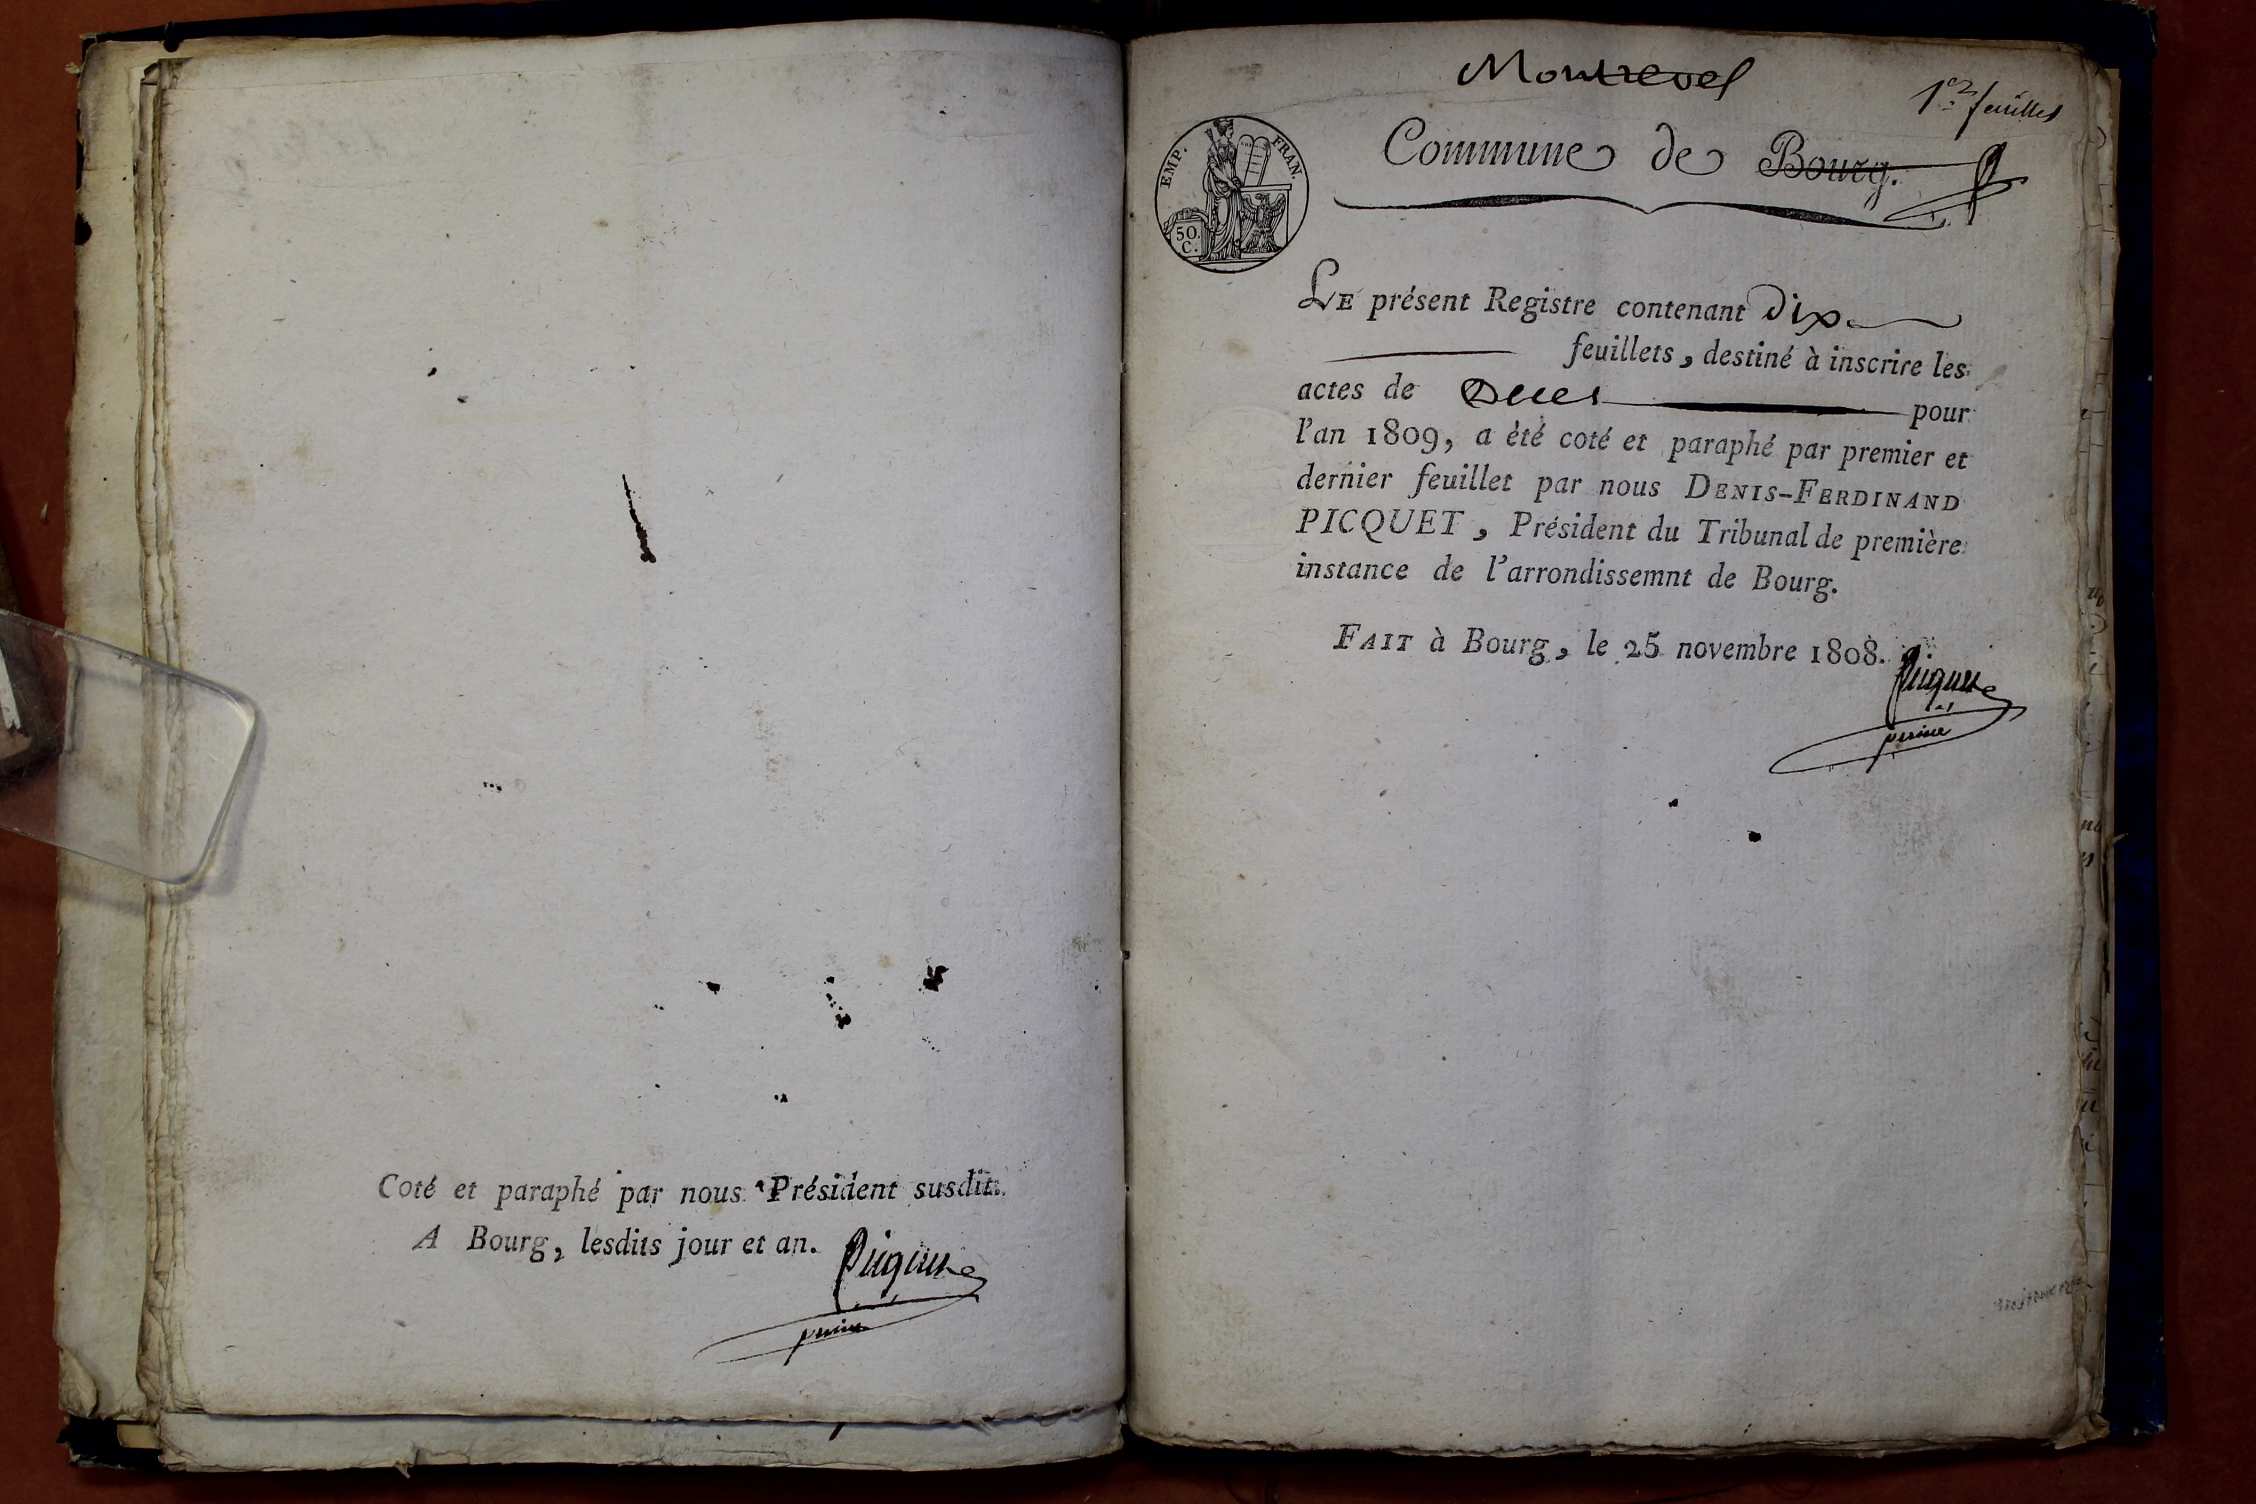 Coté et paraphé par nous Président susdit.
A Bourg, lesdits jour et an.
Picquet
Montrevel
1er feuillet
EMP. FRAN.
50.
C.
Commune de Bourg.
LE présent Registre contenant dix
feuillets, destiné à inscrire les
actes de Deces pour
l'an 1809, a èté coté et paraphé par premier et
dernier feuillet par nous DENIS-FERDINAND
PICQUET, Président du Tribunal de première
instance de l'arrondissemnt de Bourg.
FAIT à Bourg, le 25 novembre 1808.
Picquet